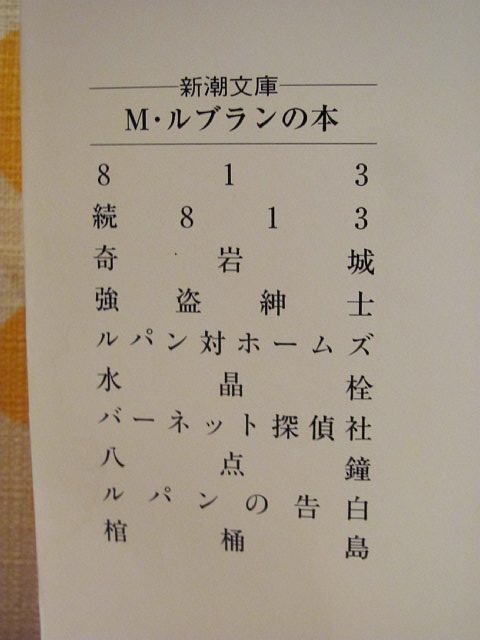 新潮文庫
M・ルブランの本
813
続813
奇岩城
強盗紳士
ルパン対ホームズ
水晶栓
バーネット探偵社
八点鐘
ルパンの告白
棺桶島